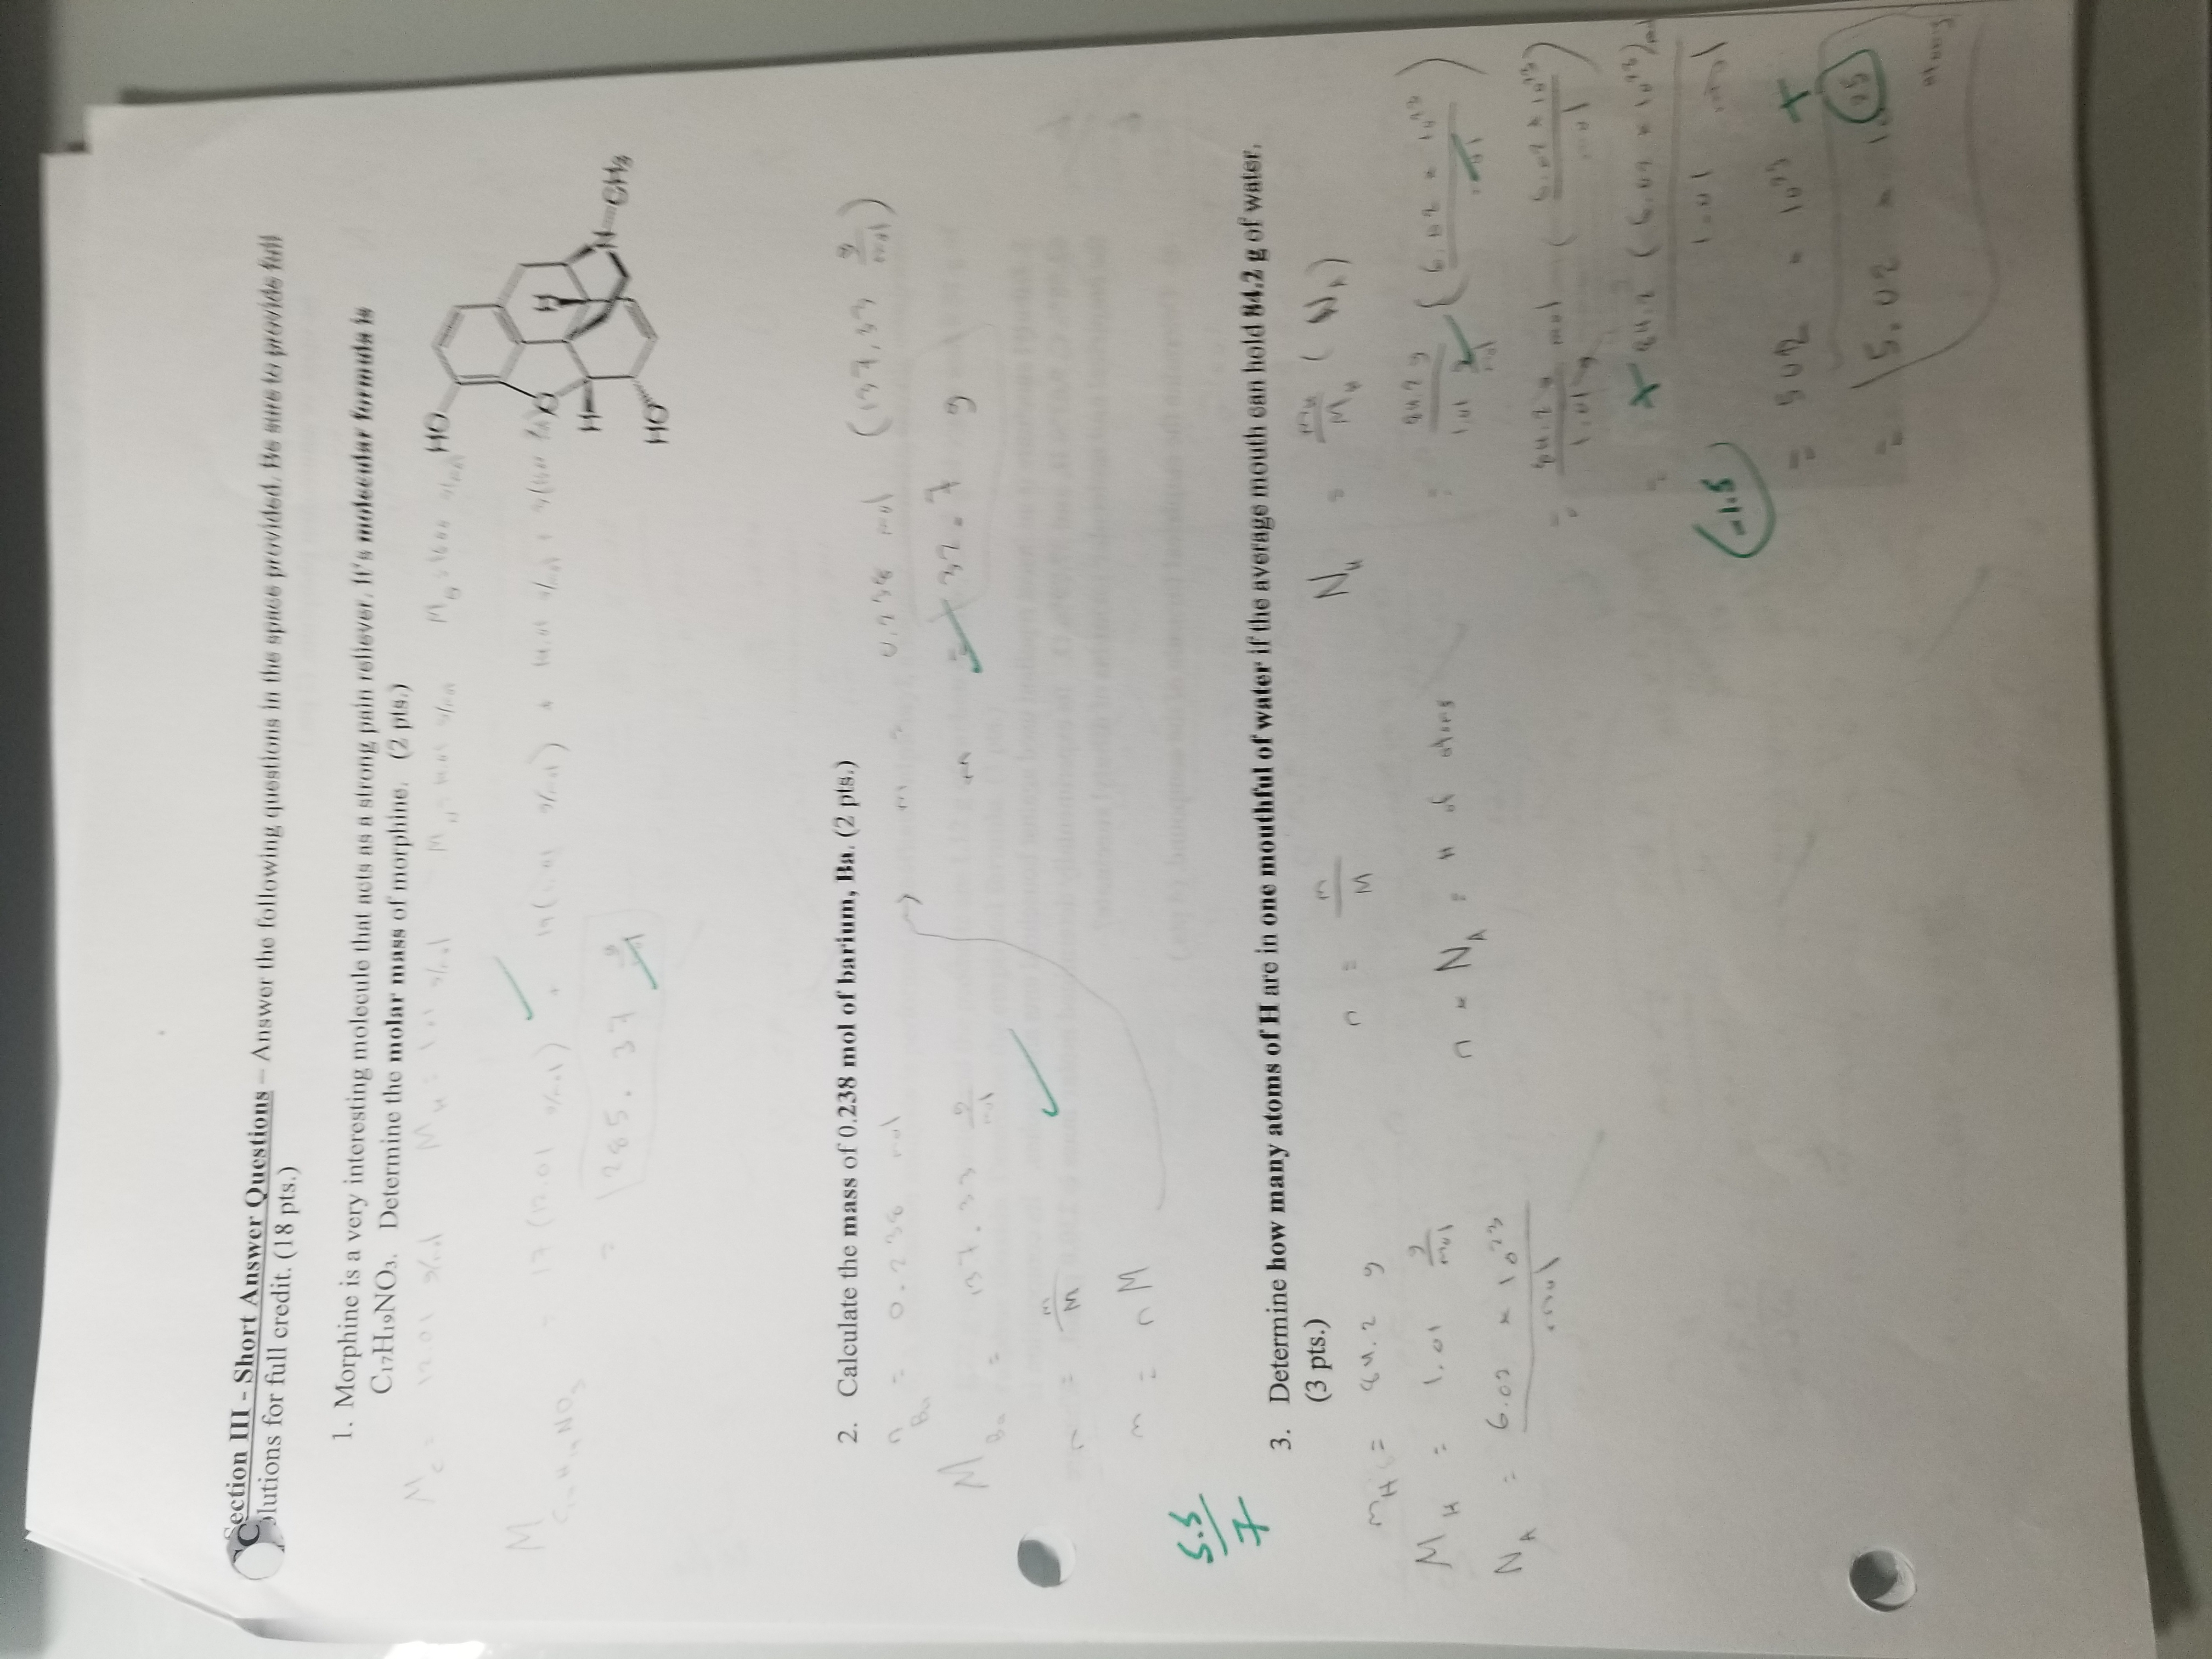 Section III - Short Answer Questions – Answer the following questions in the space provided. Be sure to provide full
solutions for full credit. (18 pts.)
1. Morphine is a very interesting molecule that acts as a strong pain reliever. It's molecular formula is
C17H19NO3. Determine the molar mass of morphine. (2 pts.)
M_C = 12.01 g/mol M_H = 1.01 g/mol M_N = 14.01 g/mol M_O = 16.00 g/mol
HO
M_C17H19NO3 = 17 (12.01 g/mol) + 19 (1.01 g/mol) + 14.01 g/mol +
O
H
H
N CH3
HO
= 285.37 g/mol
2. Calculate the mass of 0.238 mol of barium, Ba. (2 pts.)
n_Ba = 0.238 mol
M_Ba = 137.33 g/mol
n = m/M
m = nM
m = 0.238 mol (137.33 g/mol)
m = 32.7 g
5.5/7
3. Determine how many atoms of H are in one mouthful of water if the average mouth can hold 84.2 g of water.
(3 pts.)
m_H = 84.2 g
M_H = 1.01 g/mol
N_A = 6.02 × 10^23 / mol
n = m/M
n × N_A = # of atoms
N_H = m_H/M_H (N_A)
= 84.2 g / 1.01 g/mol (6.02 × 10^23 / mol)
= 84.2 g / 1.01 g mol (6.02 × 10^23 / mol)
= 84.2 (6.02 × 10^23) mol / 1.01 mol
-1.5
= 502 × 10^23
= 5.02 × 10^25 atoms